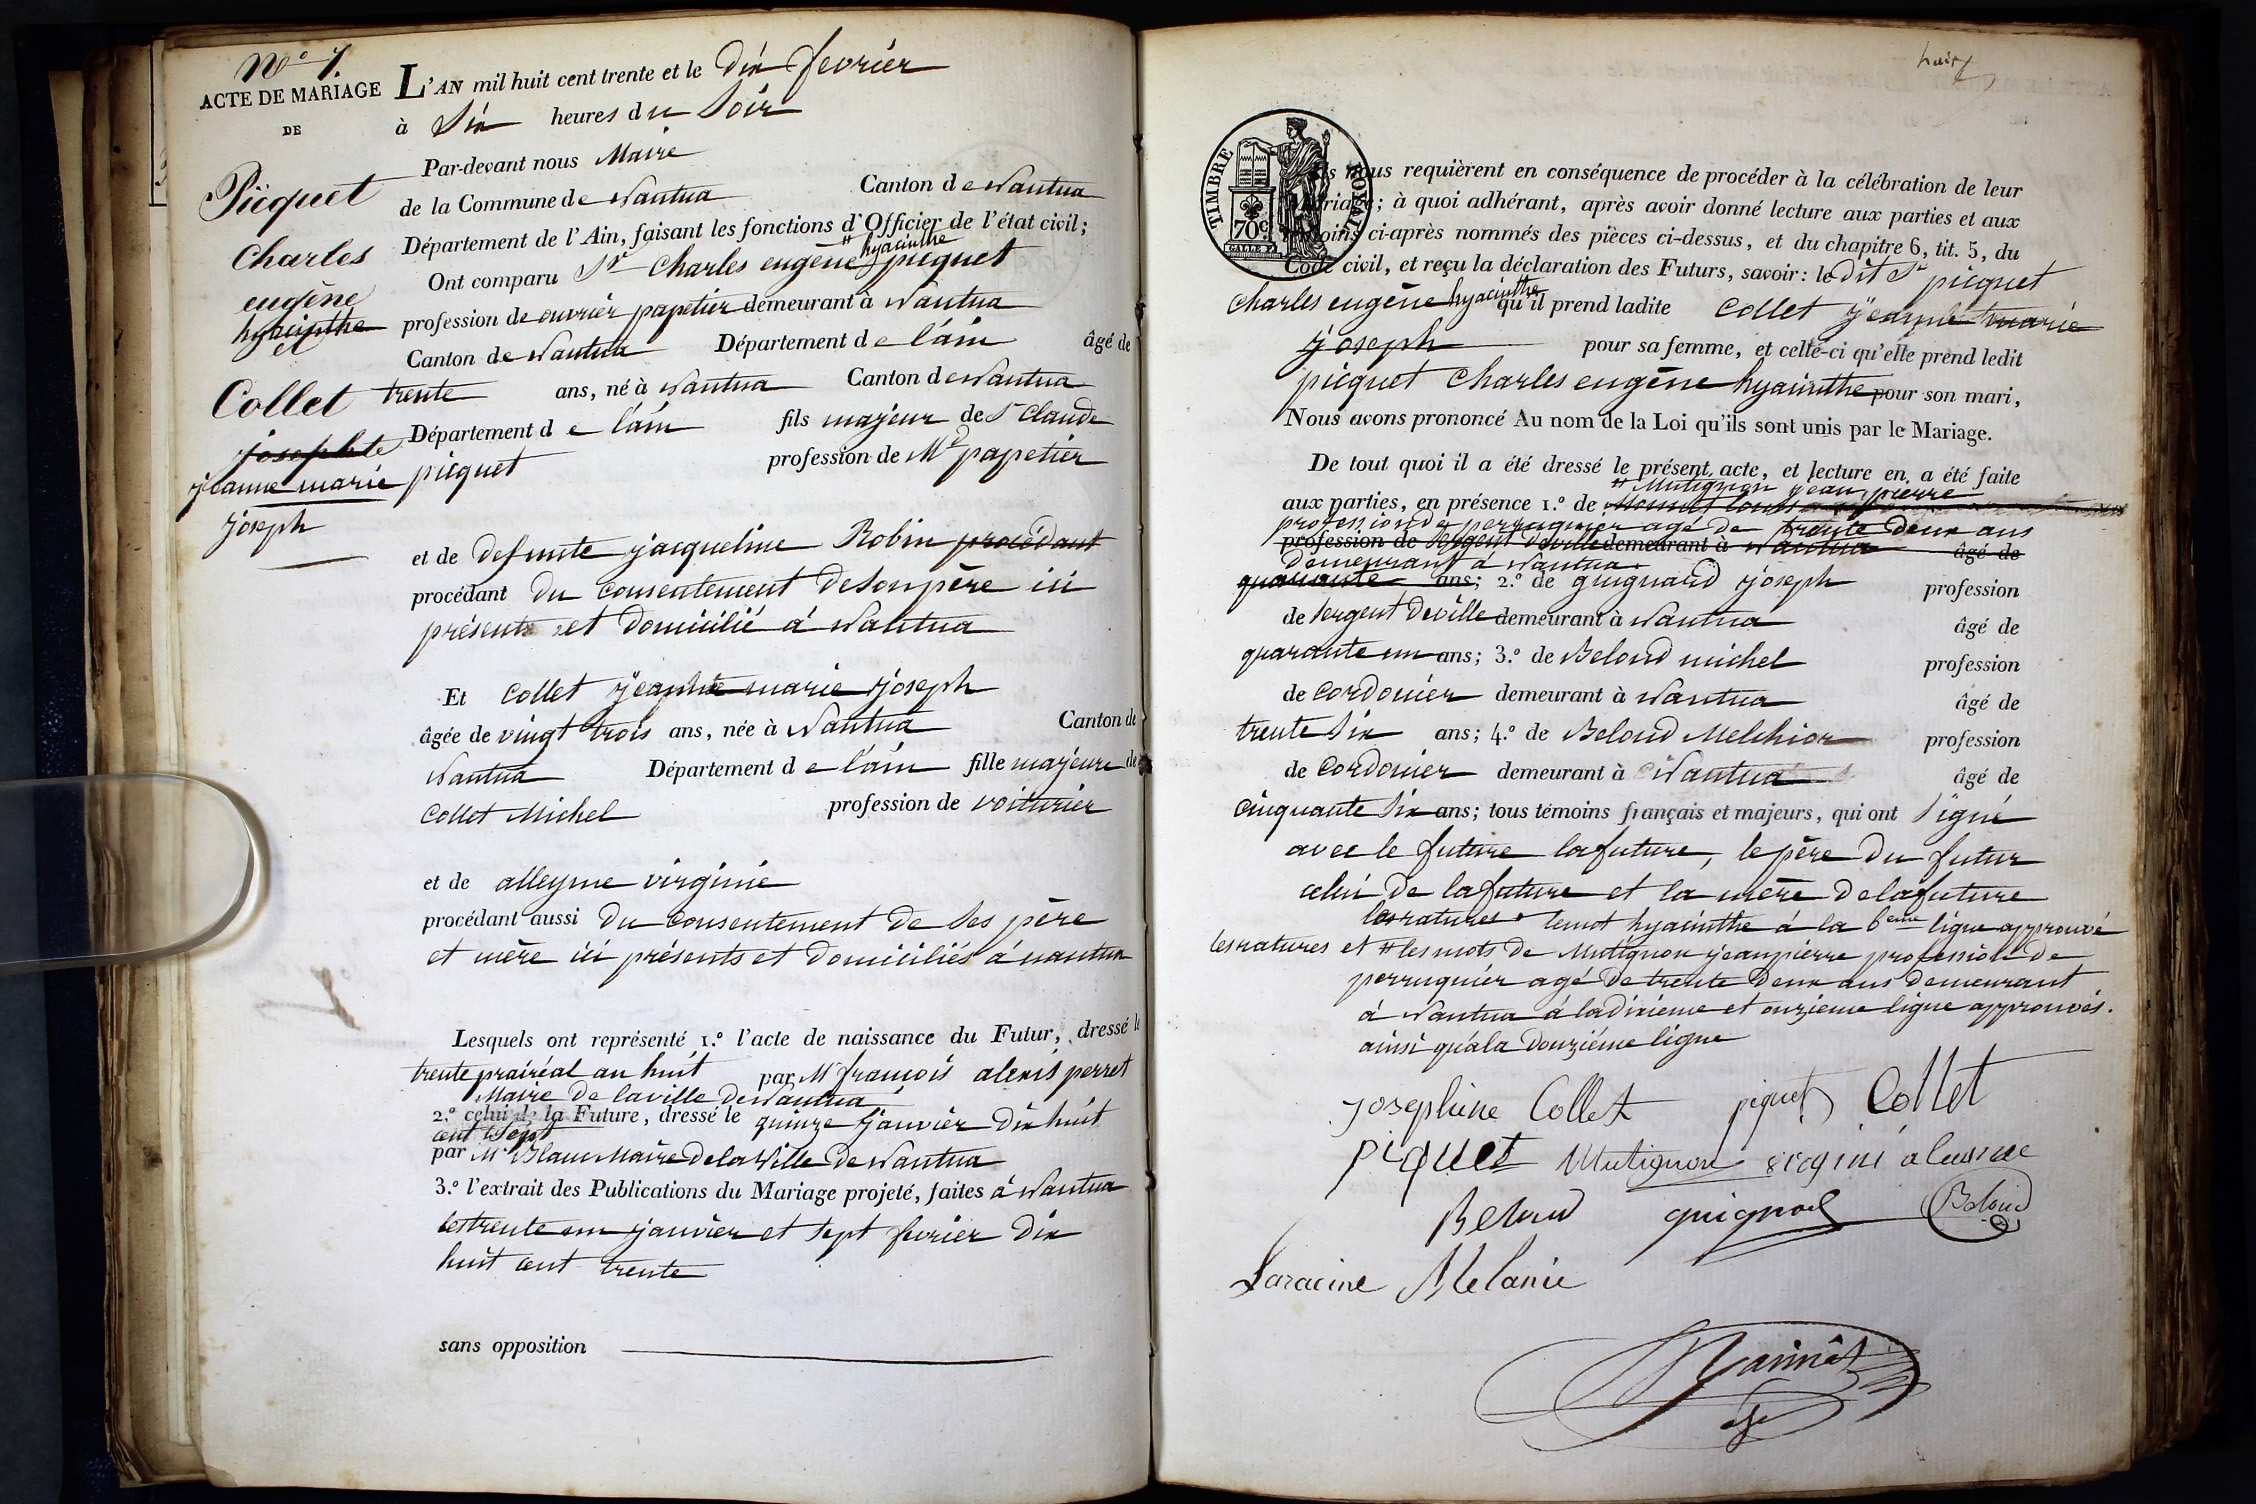 N.º 7.
ACTE DE MARIAGE
DE
Picquet
Charles
eugène
hyacinthe
et
Collet
jeanne marie
joseph
L'AN mil huit cent trente et le dix fevrier
à Six heures du Soir
Par-devant nous Maire
de la Commune de Nantua Canton de Nantua
Département de l'Ain, faisant les fonctions d'Officier de l'état civil;
Ont comparu Sr Charles eugène # hyacinthe picquet
profession de ouvrier papetier demeurant à Nantua
Canton de Nantua Département de l'ain âgé de
trente ans, né à Nantua Canton de Nantua
Département de l'ain fils majeur de Sr Claude
picquet profession de Md papetier
et de defunte jacqueline Robin procédant
procédant du consentement de son père ici
présent et domicilié à Nantua
Et Collet marie joseph
âgée de vingt trois ans, née à Nantua Canton de
Nantua Département de l'ain fille majeure de
Collet Michel profession de voiturier
et de alleyme virginie
procédant aussi du consentement de ses père
et mère ici présents et domiciliés à nantua
Lesquels ont représenté 1.º l'acte de naissance du Futur, dressé le
trente prairéal an huit par Mr françois alexis perret
Maire de la ville de Nantua
2.º celui de la Future, dressé le quinze janvier dix huit
cent sept
par Mr Blanc Maire de la Ville de Nantua
3.º l'extrait des Publications du Mariage projeté, faites à Nantua
les trente un janvier et sept fevrier dix
huit cent trente
sans opposition
huit
TIMBRE ROYAL
70c
Ils nous requièrent en conséquence de procéder à la célébration de leur
mariage; à quoi adhérant, après avoir donné lecture aux parties et aux
témoins ci-après nommés des pièces ci-dessus, et du chapitre 6, tit. 5, du
Code civil, et reçu la déclaration des Futurs, savoir: le dit Sr picquet
Charles eugène hyacinthe qu'il prend ladite Collet marie
joseph pour sa femme, et celle-ci qu'elle prend ledit
picquet Charles eugène hyacinthe pour son mari,
Nous avons prononcé Au nom de la Loi qu'ils sont unis par le Mariage.
De tout quoi il a été dressé le présent acte, et lecture en a été faite
# Mutignon jean pierre
aux parties, en présence 1.º de
profession de perruquier agé de trente deux ans
profession de Sergent de ville demeurant à Nantua âgé de
demeurant à Nantua
quarante ans; 2.º de guignard joseph profession
de Sergent de ville demeurant à Nantua âgé de
quarante un ans; 3.º de Beloud michel profession
de Cordonier demeurant à Nantua âgé de
trente Six ans; 4.º de Beloud Melchior profession
de Cordonier demeurant à Nantua âgé de
cinquante Six ans; tous témoins français et majeurs, qui ont Signé
avec le future la future, le père du futur
celui de la future et la mère de la future
les ratures le mot hyacinthe à la 6eme ligne approuvé
les ratures et # les mots de Mutignon jean pierre profession de
perruquier agé de trente deux ans demeurant
à Nantua à la dixieme et onzieme ligne approuvés.
ainsi qu'à la douzième ligne
Josephine Collet piquet Collet
piquet Mutignon
Beloud guignard Beloud
Laracine Melanie